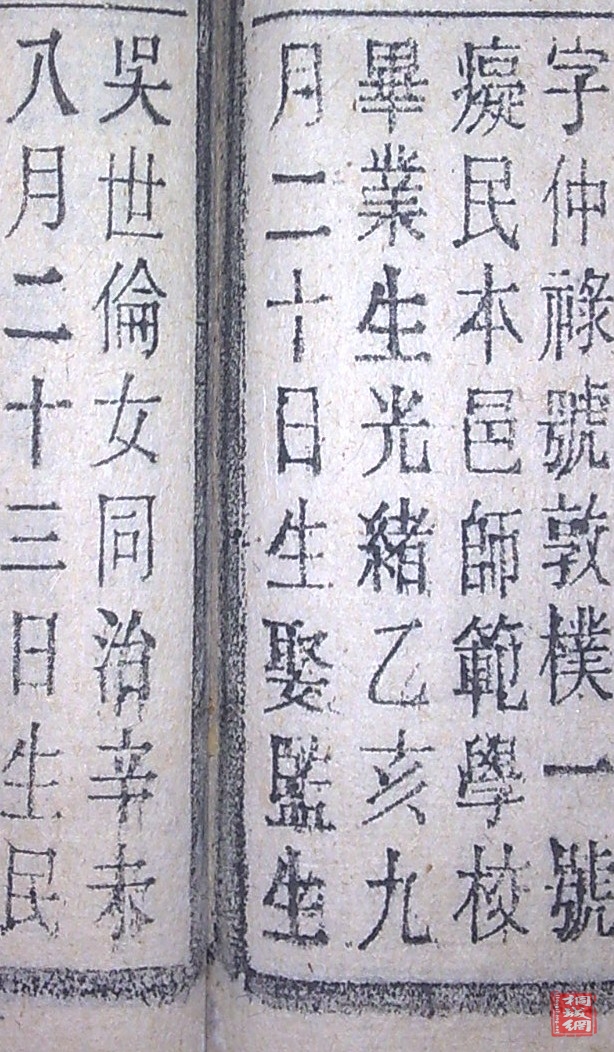 字仲祿號敦樸一號
癡民本邑師範學校
畢業生光緒乙亥九
月二十日生娶監生
吳世倫女同治辛未
八月二十三日生民
桐城網